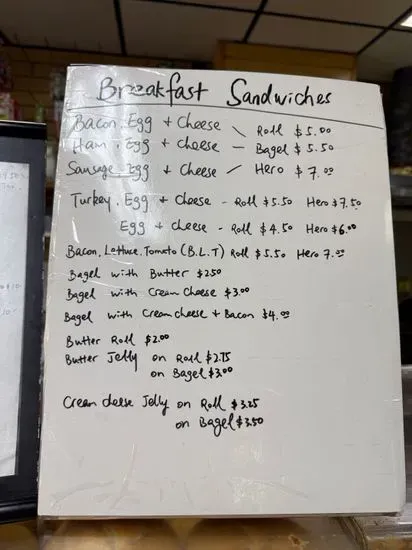 Breakfast Sandwiches
Bacon, Egg + Cheese \ Roll $5.00
Ham, Egg + cheese - Bagel $5.50
Sausage Egg + Cheese / Hero $7.00
Turkey, Egg + Cheese - Roll $5.50 Hero $7.50
Egg + cheese - Roll $4.50 Hero $6.00
Bacon, Lettuce, Tomato (B.L.T) Roll $5.50 Hero 7.00
Bagel with Butter $2.50
Bagel with Cream Cheese $3.00
Bagel with Cream cheese + Bacon $4.00
Butter Roll $2.00
Butter Jelly on Roll $2.75
on Bagel $3.00
Cream cheese Jelly on Roll $3.25
on Bagel $3.50